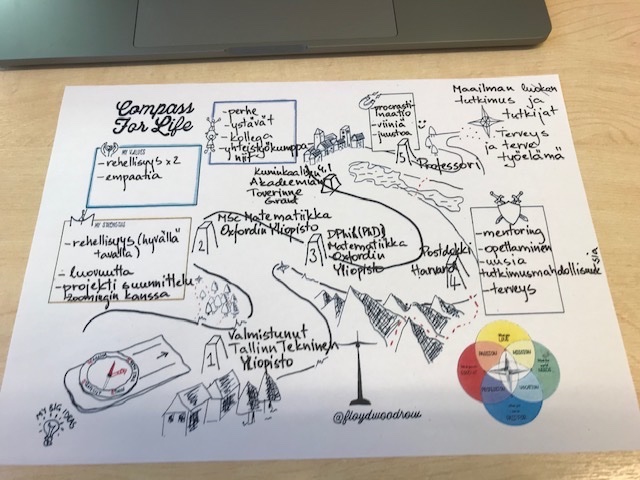 Compass
For Life
MY VALUES
- rehellisyys x 2
- empaatia
- perhe
- ystävät
- kollega
- yhteistyökumppa
niit
- procrasti-
naatio
- viiniä
- juustoa
Maailman luokan
- tutkimus ja
tutkijat
Terveys
ja terve
työelämä
5
Professori
Kuninkaallisen
Akadeemian
Toverinne
Grant
MY STRENGTHS
- rehellisyys (hyvällä
tavalla)
- luovuutta
- projekti suunnittelu
zoomingin kanssa
2
MSc Matematiikka
Oxfordin Yliopisto
3
DPhil (PhD)
Matematiikka
Oxfordin
Yliopisto
Postdokki
Harvard
4
- mentoring
- opettaminen
- uusia
tutkimusmahdollisuuk
sia
- terveys
1
Valmistunut
Tallinn Tekninen
Yliopisto
MY BIG IDEAS
@floydwoodrow
PASSION
MISSION
PROFESSION
VOCATION